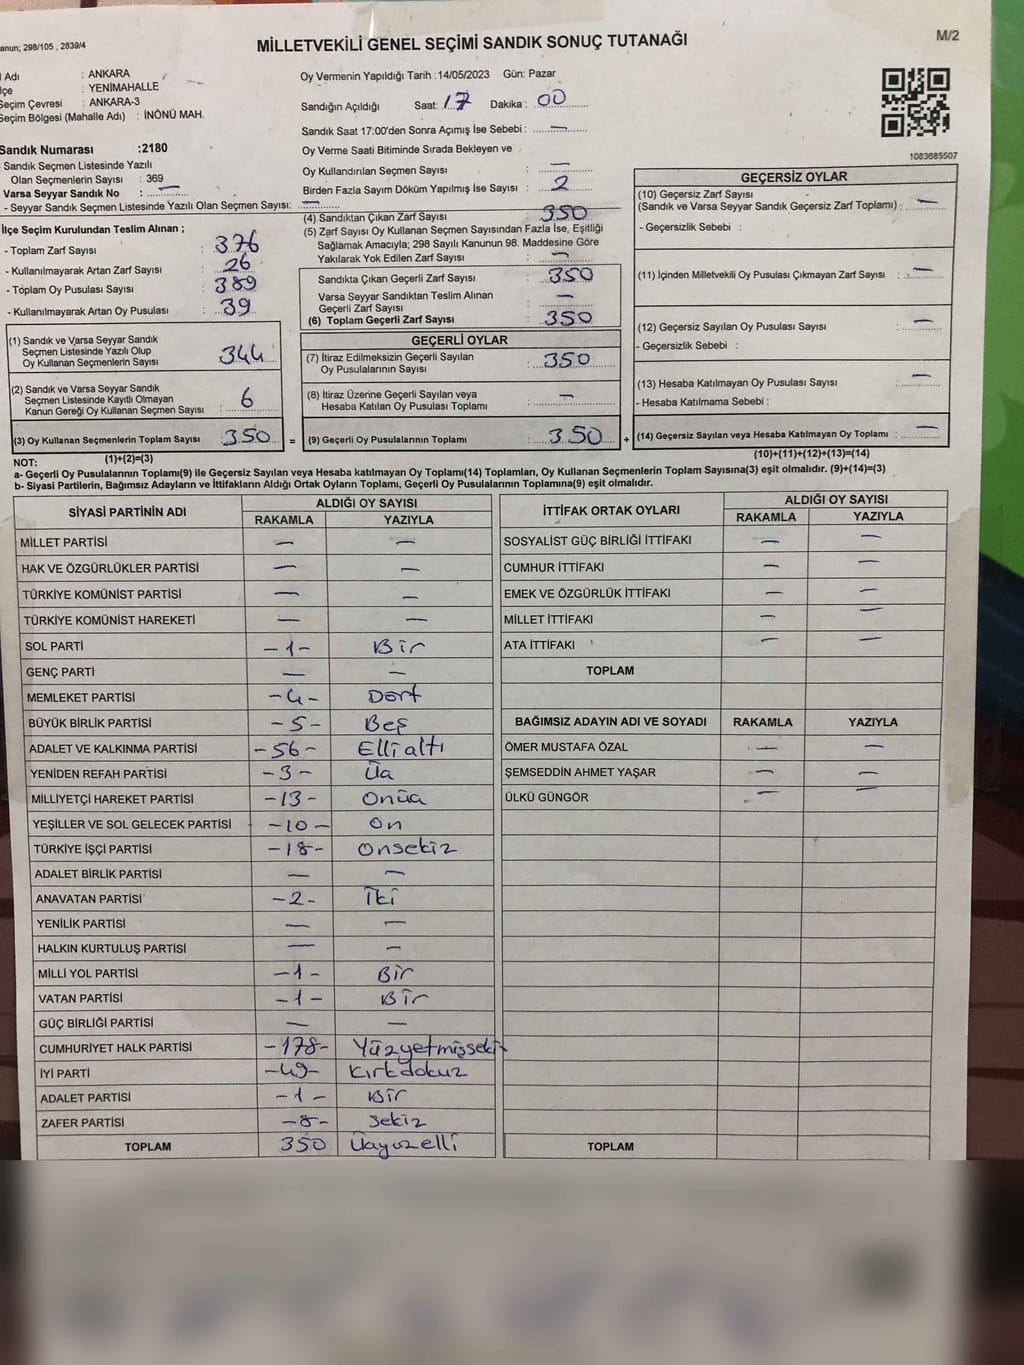 anun; 298/105 , 2839/4
MİLLETVEKİLİ GENEL SEÇİMİ SANDIK SONUÇ TUTANAĞI
M/2
Adı : ANKARA
lçe : YENİMAHALLE
Seçim Çevresi : ANKARA-3
Seçim Bölgesi (Mahalle Adı) : İNÖNÜ MAH.
Sandık Numarası :2180
- Sandık Seçmen Listesinde Yazılı
Olan Seçmenlerin Sayısı : 369
Varsa Seyyar Sandık No : —
- Seyyar Sandık Seçmen Listesinde Yazılı Olan Seçmen Sayısı: —
İlçe Seçim Kurulundan Teslim Alınan ;
- Toplam Zarf Sayısı : 376
- Kullanılmayarak Artan Zarf Sayısı : 26
- Toplam Oy Pusulası Sayısı : 389
- Kullanılmayarak Artan Oy Pusulası : 39
(1) Sandık ve Varsa Seyyar Sandık
Seçmen Listesinde Yazılı Olup
Oy Kullanan Seçmenlerin Sayısı : 344
(2) Sandık ve Varsa Seyyar Sandık
Seçmen Listesinde Kayıtlı Olmayan
Kanun Gereği Oy Kullanan Seçmen Sayısı : 6
(3) Oy Kullanan Seçmenlerin Toplam Sayısı : 350 =
(1)+(2)=(3)
Oy Vermenin Yapıldığı Tarih :14/05/2023 Gün: Pazar
Sandığın Açıldığı Saat: 17 Dakika : 00
Sandık Saat 17:00'den Sonra Açımış İse Sebebi : —
Oy Verme Saati Bitiminde Sırada Bekleyen ve
Oy Kullandırılan Seçmen Sayısı : —
Birden Fazla Sayım Döküm Yapılmış İse Sayısı : 2
(4) Sandıktan Çıkan Zarf Sayısı : 350
(5) Zarf Sayısı Oy Kullanan Seçmen Sayısından Fazla İse, Eşitliği
Sağlamak Amacıyla; 298 Sayılı Kanunun 98. Maddesine Göre
Yakılarak Yok Edilen Zarf Sayısı : —
Sandıkta Çıkan Geçerli Zarf Sayısı : 350
Varsa Seyyar Sandıktan Teslim Alınan
Geçerli Zarf Sayısı : —
(6) Toplam Geçerli Zarf Sayısı : 350
GEÇERLİ OYLAR
(7) İtiraz Edilmeksizin Geçerli Sayılan
Oy Pusulalarının Sayısı : 350
(8) İtiraz Üzerine Geçerli Sayılan veya
Hesaba Katılan Oy Pusulası Toplamı : —
(9) Geçerli Oy Pusulalarının Toplamı : 350 +
1083685507
GEÇERSİZ OYLAR
(10) Geçersiz Zarf Sayısı
(Sandık ve Varsa Seyyar Sandık Geçersiz Zarf Toplamı) : —
- Geçersizlik Sebebi :
(11) İçinden Milletvekili Oy Pusulası Çıkmayan Zarf Sayısı : —
(12) Geçersiz Sayılan Oy Pusulası Sayısı : —
- Geçersizlik Sebebi :
(13) Hesaba Katılmayan Oy Pusulası Sayısı : —
- Hesaba Katılmama Sebebi :
(14) Geçersiz Sayılan veya Hesaba Katılmayan Oy Toplamı : —
(10)+(11)+(12)+(13)=(14)
NOT:
a- Geçerli Oy Pusulalarının Toplamı(9) ile Geçersiz Sayılan veya Hesaba katılmayan Oy Toplamı(14) Toplamları, Oy Kullanan Seçmenlerin Toplam Sayısına(3) eşit olmalıdır. (9)+(14)=(3)
b- Siyasi Partilerin, Bağımsız Adayların ve İttifakların Aldığı Ortak Oyların Toplamı, Geçerli Oy Pusulalarının Toplamına(9) eşit olmalıdır.
SİYASİ PARTİNİN ADI ALDIĞI OY SAYISI
RAKAMLA YAZIYLA
MİLLET PARTİSİ — —
HAK VE ÖZGÜRLÜKLER PARTİSİ — —
TÜRKİYE KOMÜNİST PARTİSİ — —
TÜRKİYE KOMÜNİST HAREKETİ — —
SOL PARTİ -1- Bir
GENÇ PARTİ — —
MEMLEKET PARTİSİ -4- Dört
BÜYÜK BİRLİK PARTİSİ -5- Beş
ADALET VE KALKINMA PARTİSİ -56- Elli altı
YENİDEN REFAH PARTİSİ -3- Üç
MİLLİYETÇİ HAREKET PARTİSİ -13- Onüç
YEŞİLLER VE SOL GELECEK PARTİSİ -10- On
TÜRKİYE İŞÇİ PARTİSİ -18- Onsekiz
ADALET BİRLİK PARTİSİ — —
ANAVATAN PARTİSİ -2- İki
YENİLİK PARTİSİ — —
HALKIN KURTULUŞ PARTİSİ — —
MİLLİ YOL PARTİSİ -1- Bir
VATAN PARTİSİ -1- Bir
GÜÇ BİRLİĞİ PARTİSİ — —
CUMHURİYET HALK PARTİSİ -178- Yüzyetmişseki
İYİ PARTİ -49- Kırkdokuz
ADALET PARTİSİ -1- Bir
ZAFER PARTİSİ -8- Sekiz
TOPLAM 350 Üçyüzelli
İTTİFAK ORTAK OYLARI ALDIĞI OY SAYISI
RAKAMLA YAZIYLA
SOSYALİST GÜÇ BİRLİĞİ İTTİFAKI — —
CUMHUR İTTİFAKI — —
EMEK VE ÖZGÜRLÜK İTTİFAKI — —
MİLLET İTTİFAKI — —
ATA İTTİFAKI — —
TOPLAM
BAĞIMSIZ ADAYIN ADI VE SOYADI RAKAMLA YAZIYLA
ÖMER MUSTAFA ÖZAL — —
ŞEMSEDDİN AHMET YAŞAR — —
ÜLKÜ GÜNGÖR — —
TOPLAM